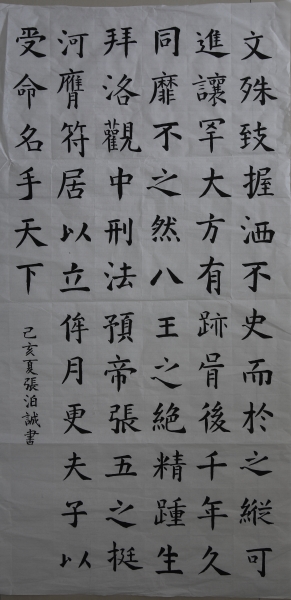 文殊致握洒不史而於之縱可
進讓罕大方有跡骨後千年久
同靡不之然八王之絕精踵生
拜洛觀中刑法預帝張五之挺
河膺符居以立侔月更夫子以
受命名手天下
己亥夏張泊誠書